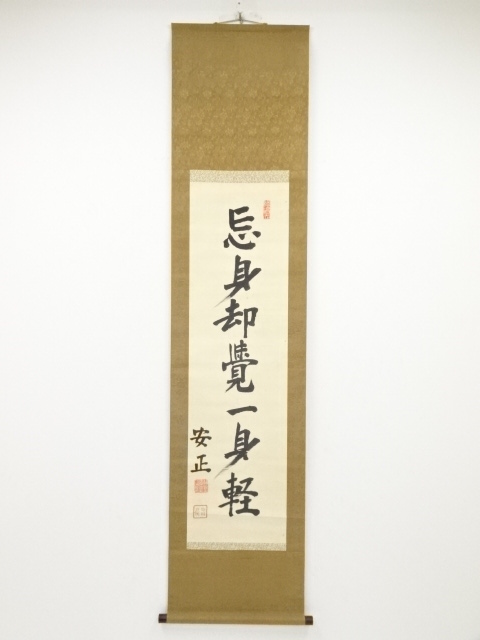 忘身却覺一身軽
安正